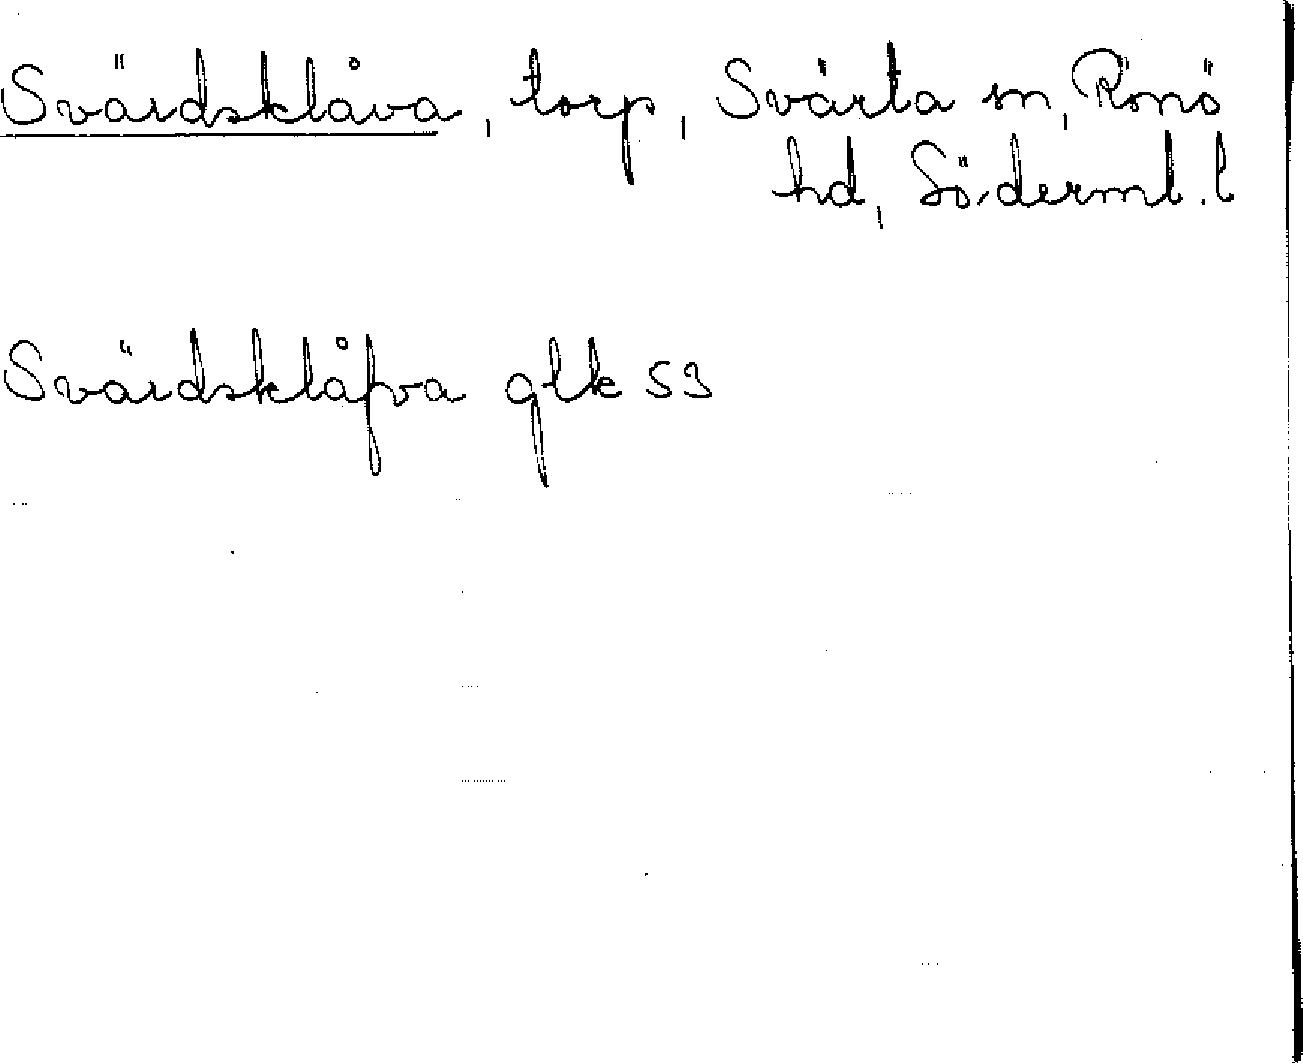 Svärdsklåva, torp, Svärta sn, Rönö
hd, Söderml. l
Svärdsklåfva glk 53